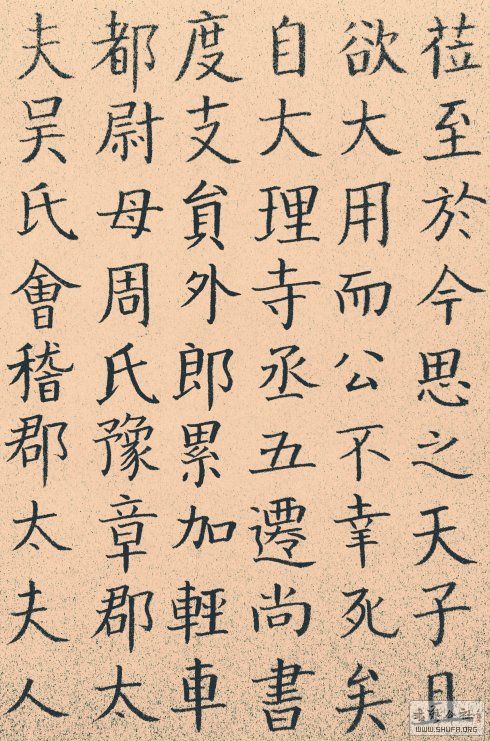 莅至於今思之天子且
欲大用而公不幸死矣
自大理寺丞五遷尚書
度支貟外郎累加輕車
都尉母周氏豫章郡太
夫吴氏會稽郡太夫人
WWW.SHUFA.ORG